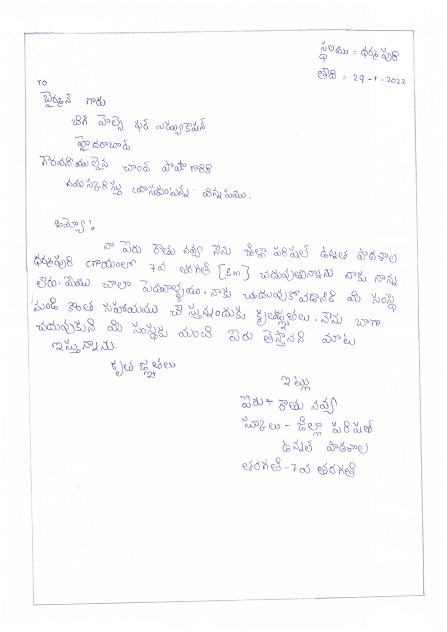 స్థలము = ధర్మపురి
తేది = 29-1-2022
TO
ఛైర్మన్ గారు
బిగ్ హెల్ప్ ఫర్ ఎడ్యుకేషన్
హైదరాబాద్
గౌరవనీయులైన చాంద్ పాషా గారికి
నమస్కరిస్తు రాసుకుంటున్న విన్నపము.
అయ్యా :
నా పేరు రాతు నవ్య నేను జిల్లా పరిషత్ ఉన్నత పాఠశాల
ధర్మపురి గ్రామంలో 7వ తరగతి [Em] చదువుతున్నాను నాకు నాన్న
లేరు. మేము చాలా పేదవాళ్ళము. నాకు చదువుకోవడానికి మీ సంస్థ
నుండి కొంత సహాయము చేస్తున్నందుకు కృతజ్ఞతలు. నేను బాగా
చదువుకుని మీ సంస్థకు మంచి పేరు తెస్తానని మాట
ఇస్తున్నాను.
కృతజ్ఞతలు
ఇట్లు
పేరు - రాతు నవ్య
స్కూలు - జిల్లా పరిషత్
ఉన్నత పాఠశాల
తరగతి - 7వ తరగతి